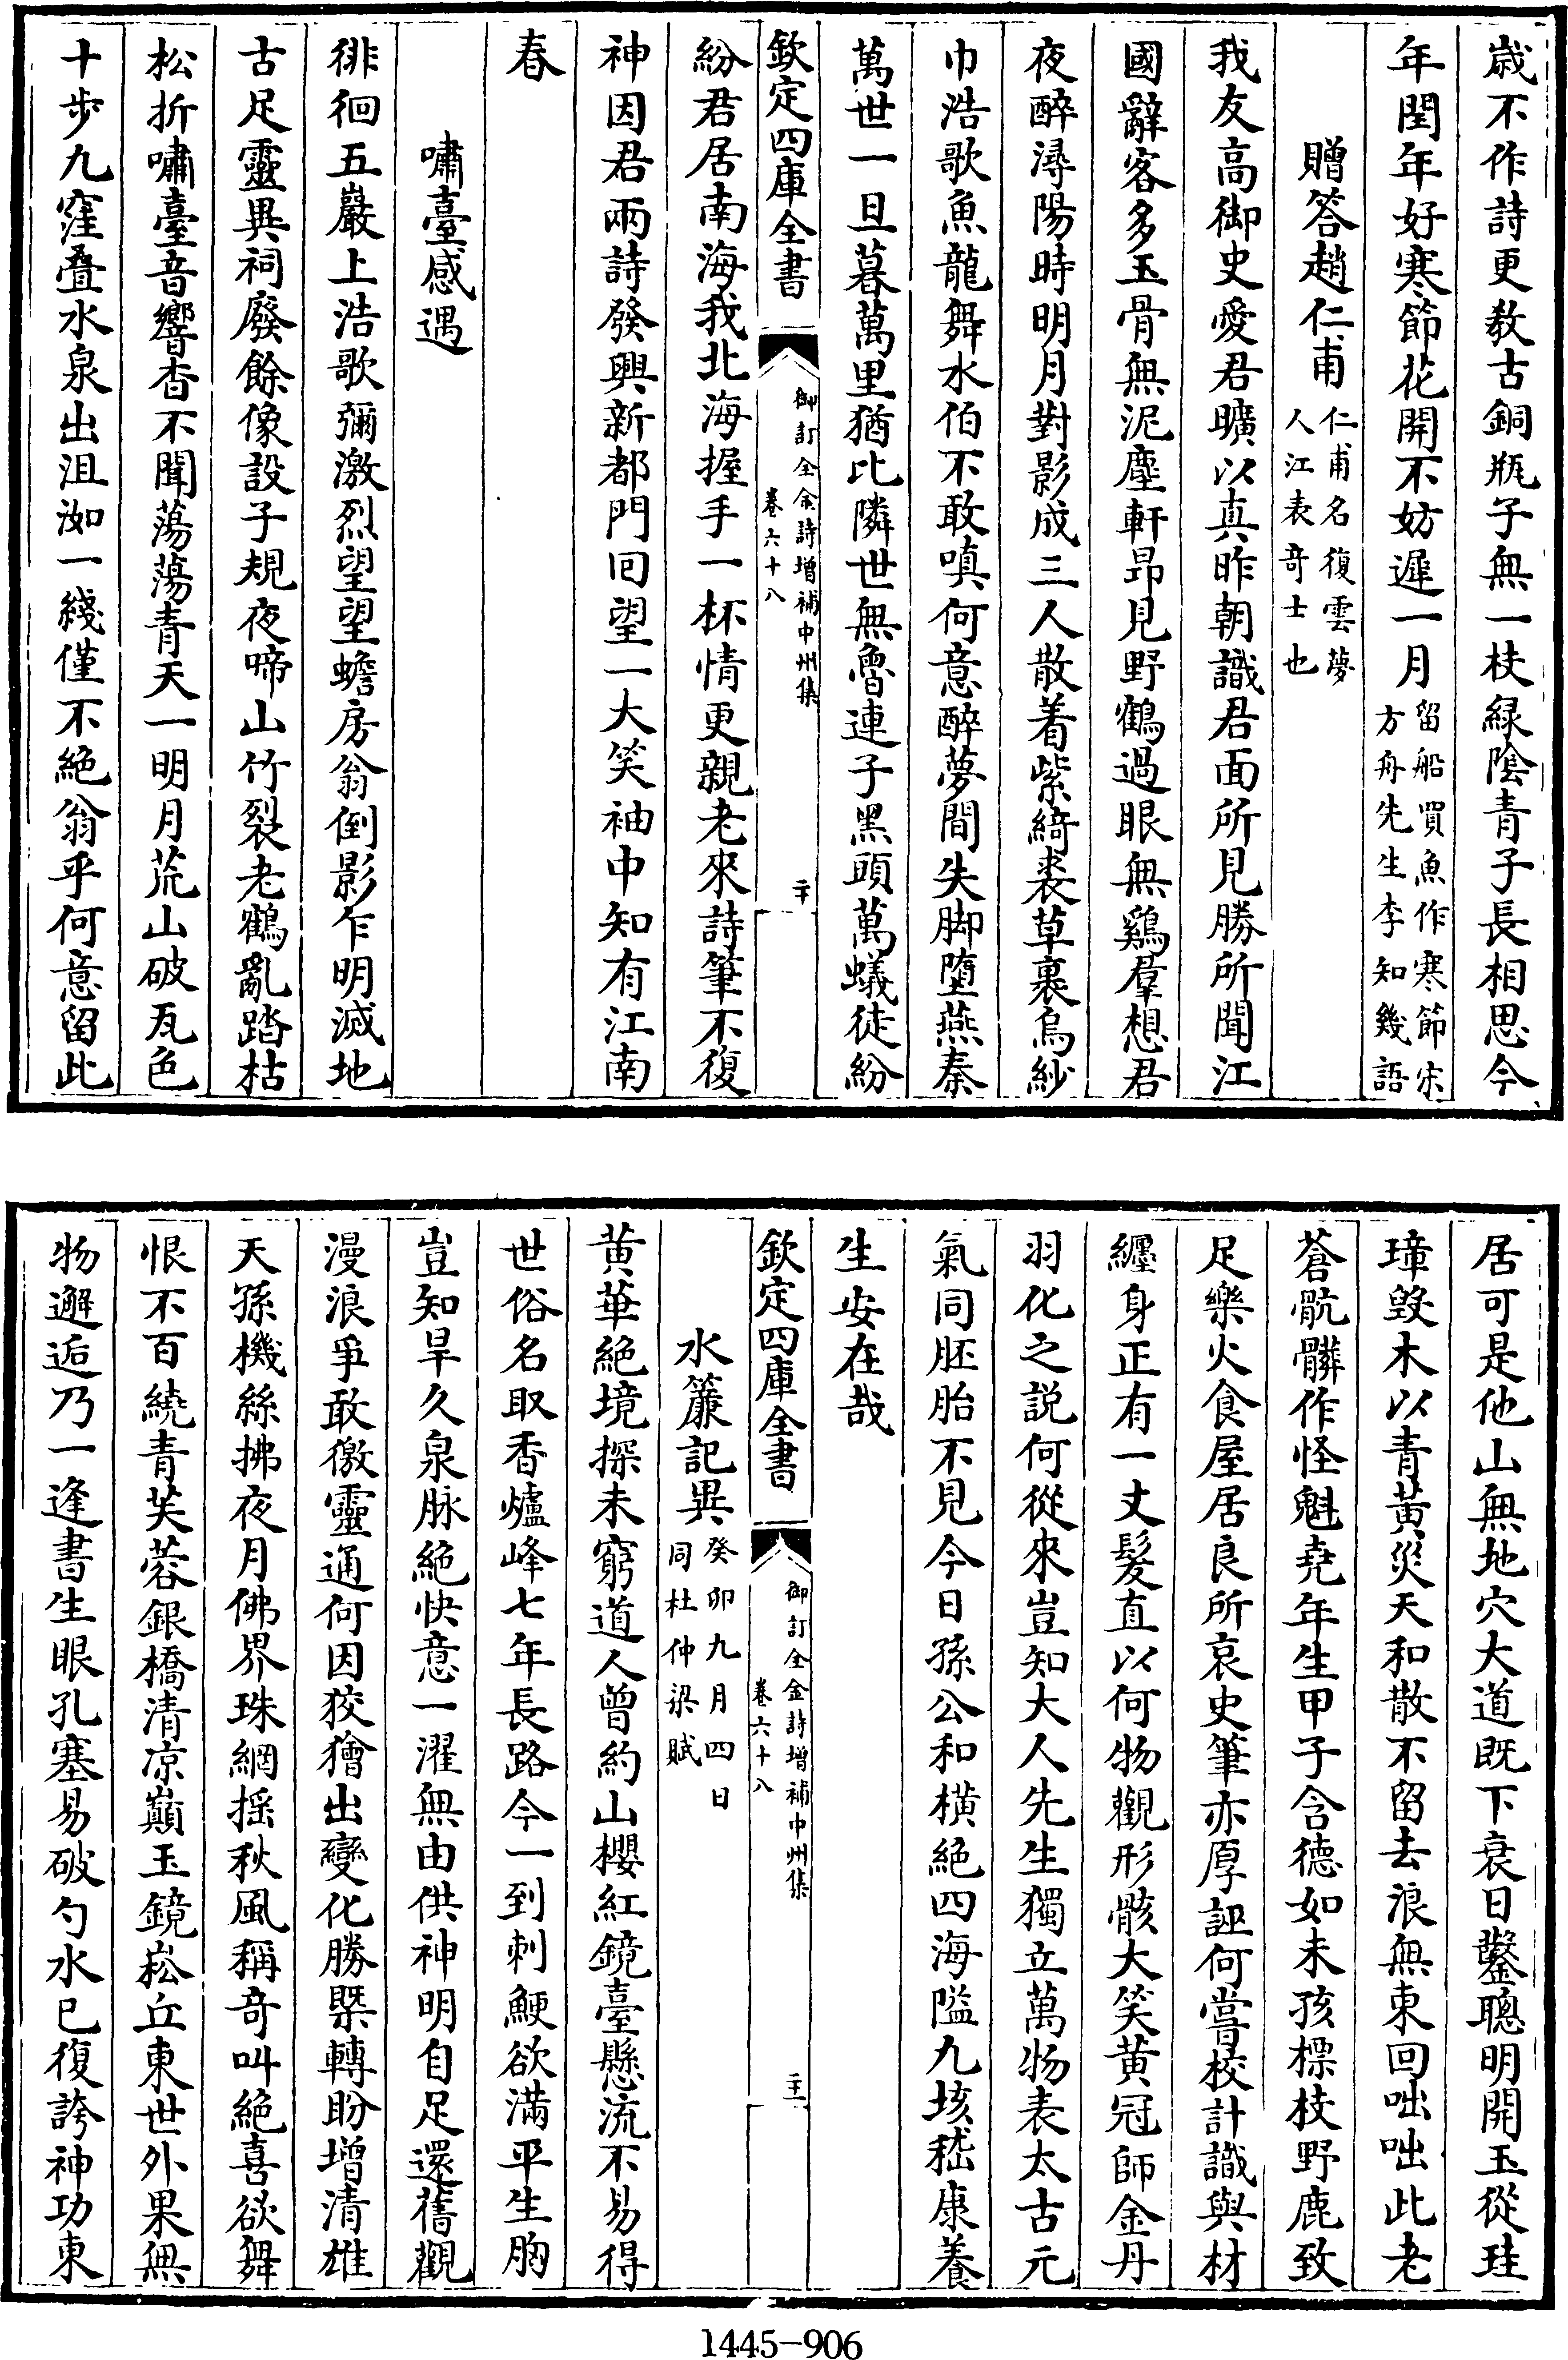 歳不作詩更敎古銅瓶子無一枝緑陰青子長相思今
年閏年好寒節花開不妨遲一月留船買魚作寒節宋
方舟先生李知幾語
贈答趙仁甫仁甫名復雲夢
人江表奇士也
我友高御史愛君曠以真昨朝識君面所見勝所聞江
國辭客多玉骨無泥塵軒昂見野鶴過眼無鷄羣想君
夜醉潯陽時明月對影成三人散着紫綺裘草裹烏紗
巾浩歌魚龍舞水伯不敢嗔何意醉夢間失脚墮燕秦
萬世一旦暮萬里猶比隣世無魯連子黑頭萬蟻徒紛
欽定四庫全書
御訂全金詩增補中州集
卷六十八
二十
紛君居南海我北海握手一杯情更親老來詩筆不復
神因君兩詩發興新都門回望一大笑袖中知有江南
春
嘯臺感遇
徘徊五巖上浩歌彌激烈望望蟾房翁倒影乍明滅地
古足靈異祠廢餘像設子規夜啼山竹裂老鶴亂踏枯
松折嘯臺音響杳不聞蕩蕩青天一明月荒山破瓦色
十步九窪叠水泉出沮洳一綫僅不絶翁乎何意留此
居可是他山無地穴大道既下衰日鑿聰明開玉從珪
璋毀木以青黃災天和散不留去浪無東回咄咄此老
蒼骯髒作怪魁堯年生甲子含德如未孩標枝野鹿致
足樂火食屋居良所哀史筆亦厚誣何嘗校計識與材
纏身正有一丈髮直以何物觀形骸大笑黃冠師金丹
羽化之説何從來豈知大人先生獨立萬物表太古元
氣同胚胎不見今日孫公和橫絶四海隘九垓嵇康養
生安在哉
欽定四庫全書
御訂全金詩增補中州集
卷六十八
二十一
水簾記異癸卯九月四日
同杜仲梁賦
黃華絶境探未窮道人曾約山櫻紅鏡臺懸流不易得
世俗名取香爐峰七年長路今一到刺鯁欲滿平生胸
豈知旱久泉脉絶快意一濯無由供神明自足還舊觀
漫浪爭敢徼靈通何因狡獪出變化勝槩轉盼增清雄
天孫機絲拂夜月佛界珠網搖秋風稱奇叫絶喜欲舞
恨不百繞青芙蓉銀橋清凉巔玉鏡崧丘東世外果無
物邂逅乃一逢書生眼孔塞易破勺水已復誇神功東
1445-906